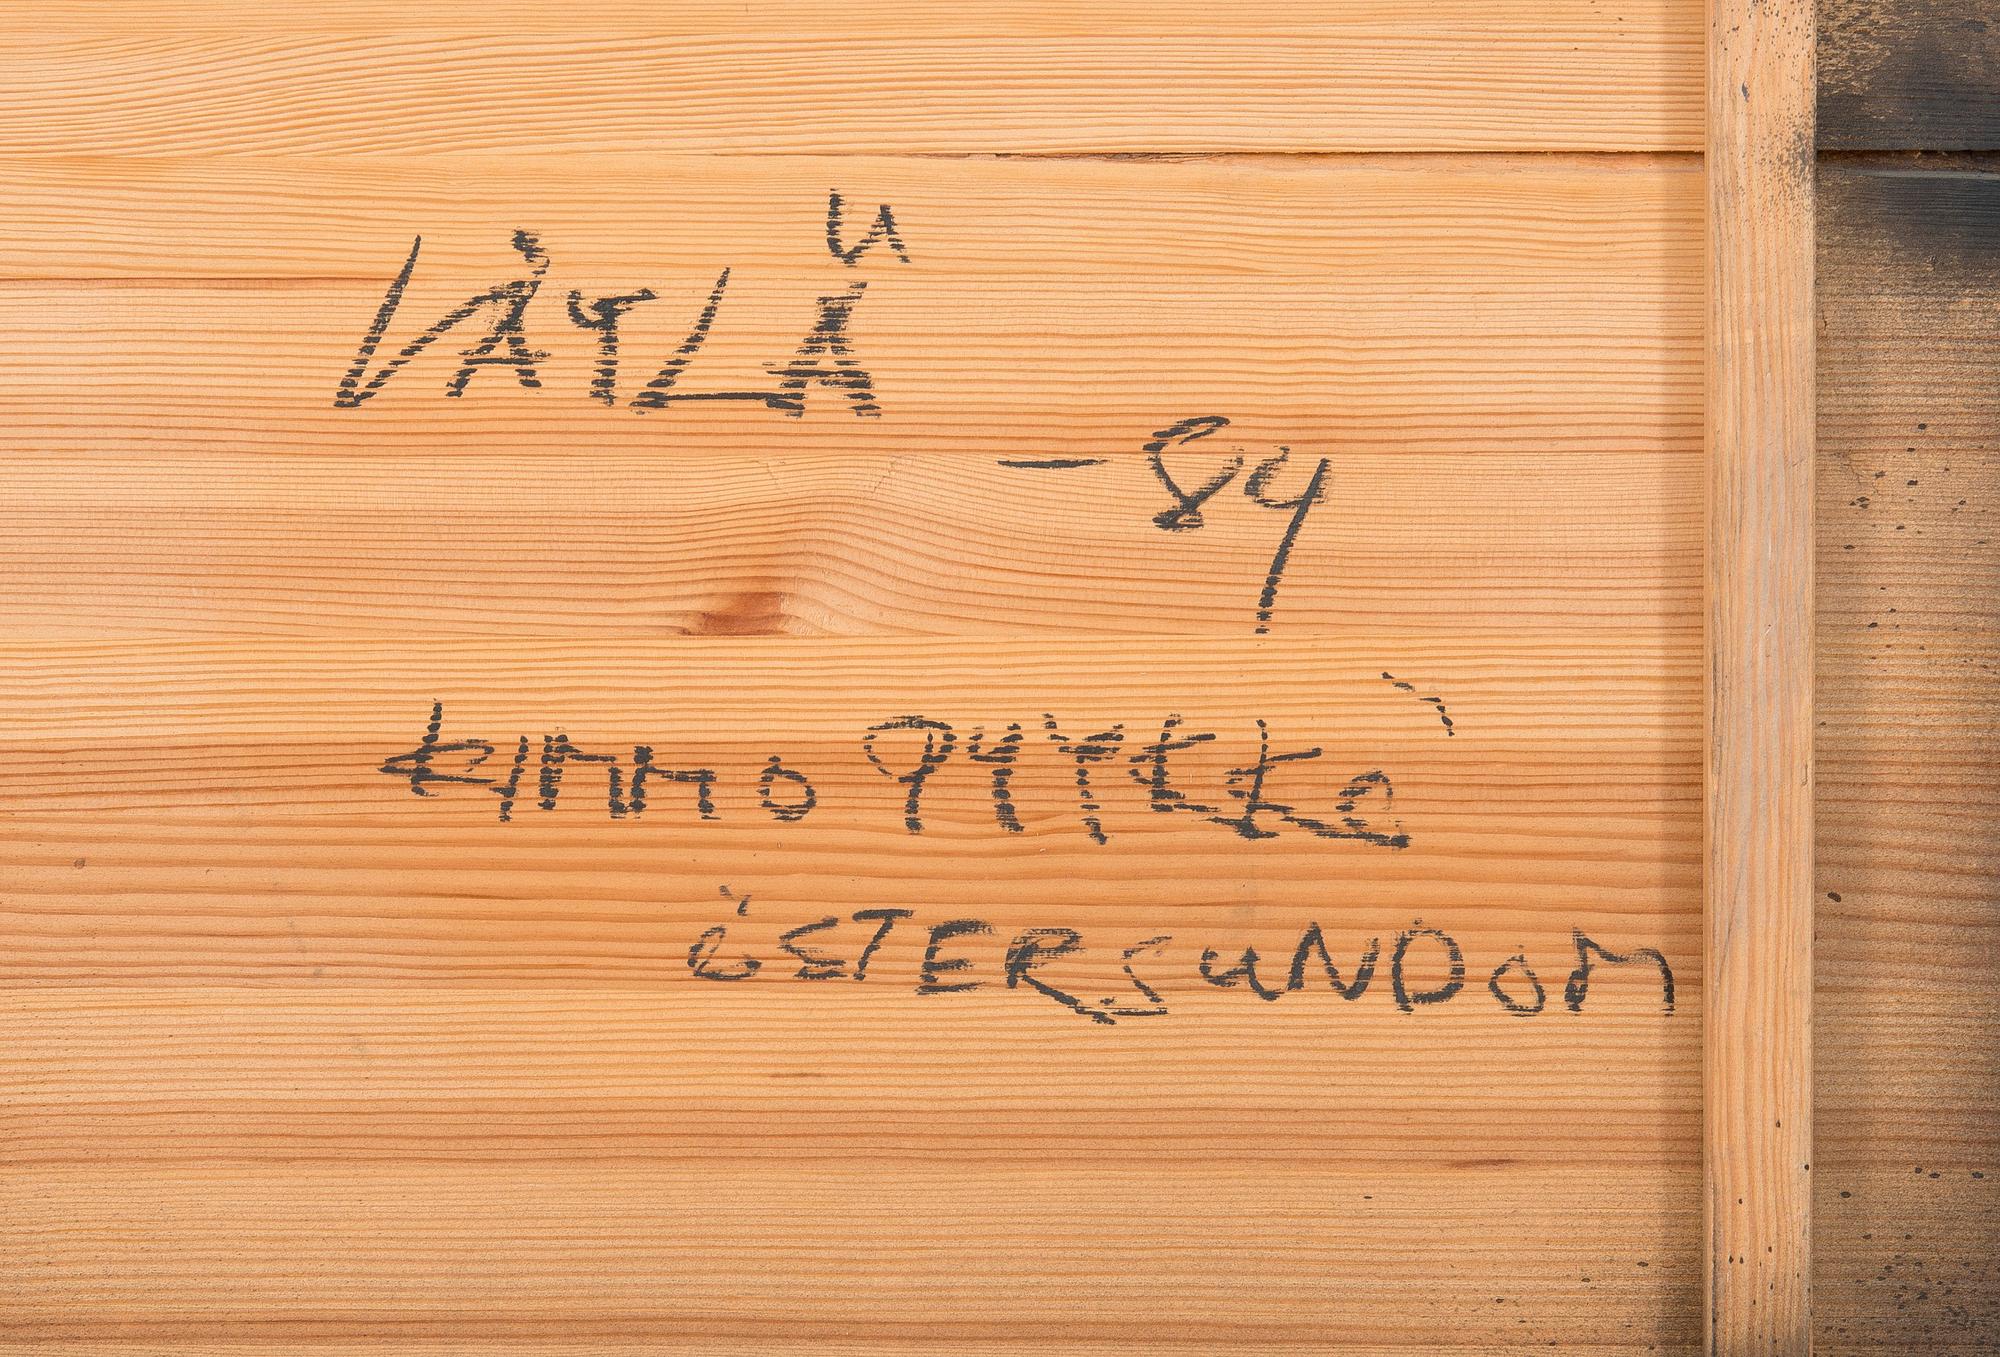 VÄYLÄ
-84
Kimmo Pyykkö
ÖSTERSUNDOM